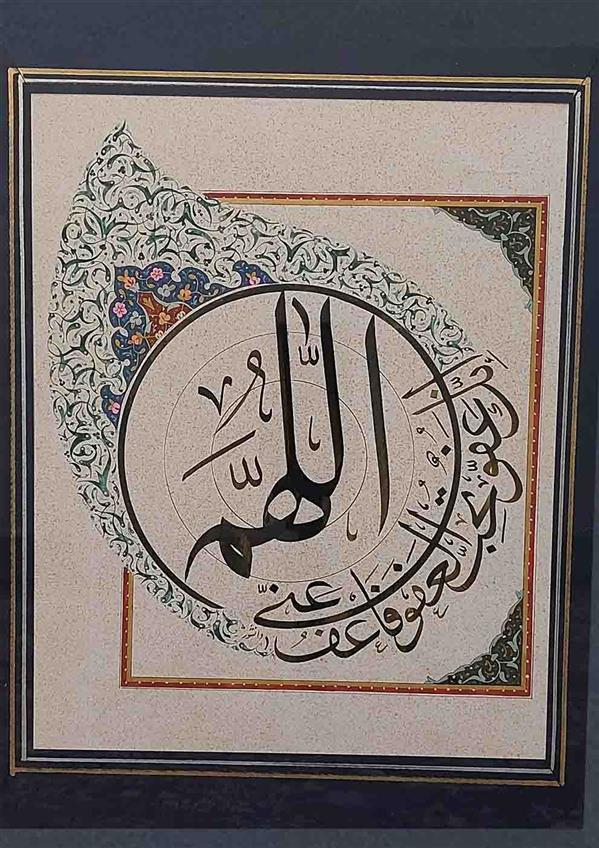 اللّهمّ
إنك عفوّ تحبّ العفو فاعف عنّي